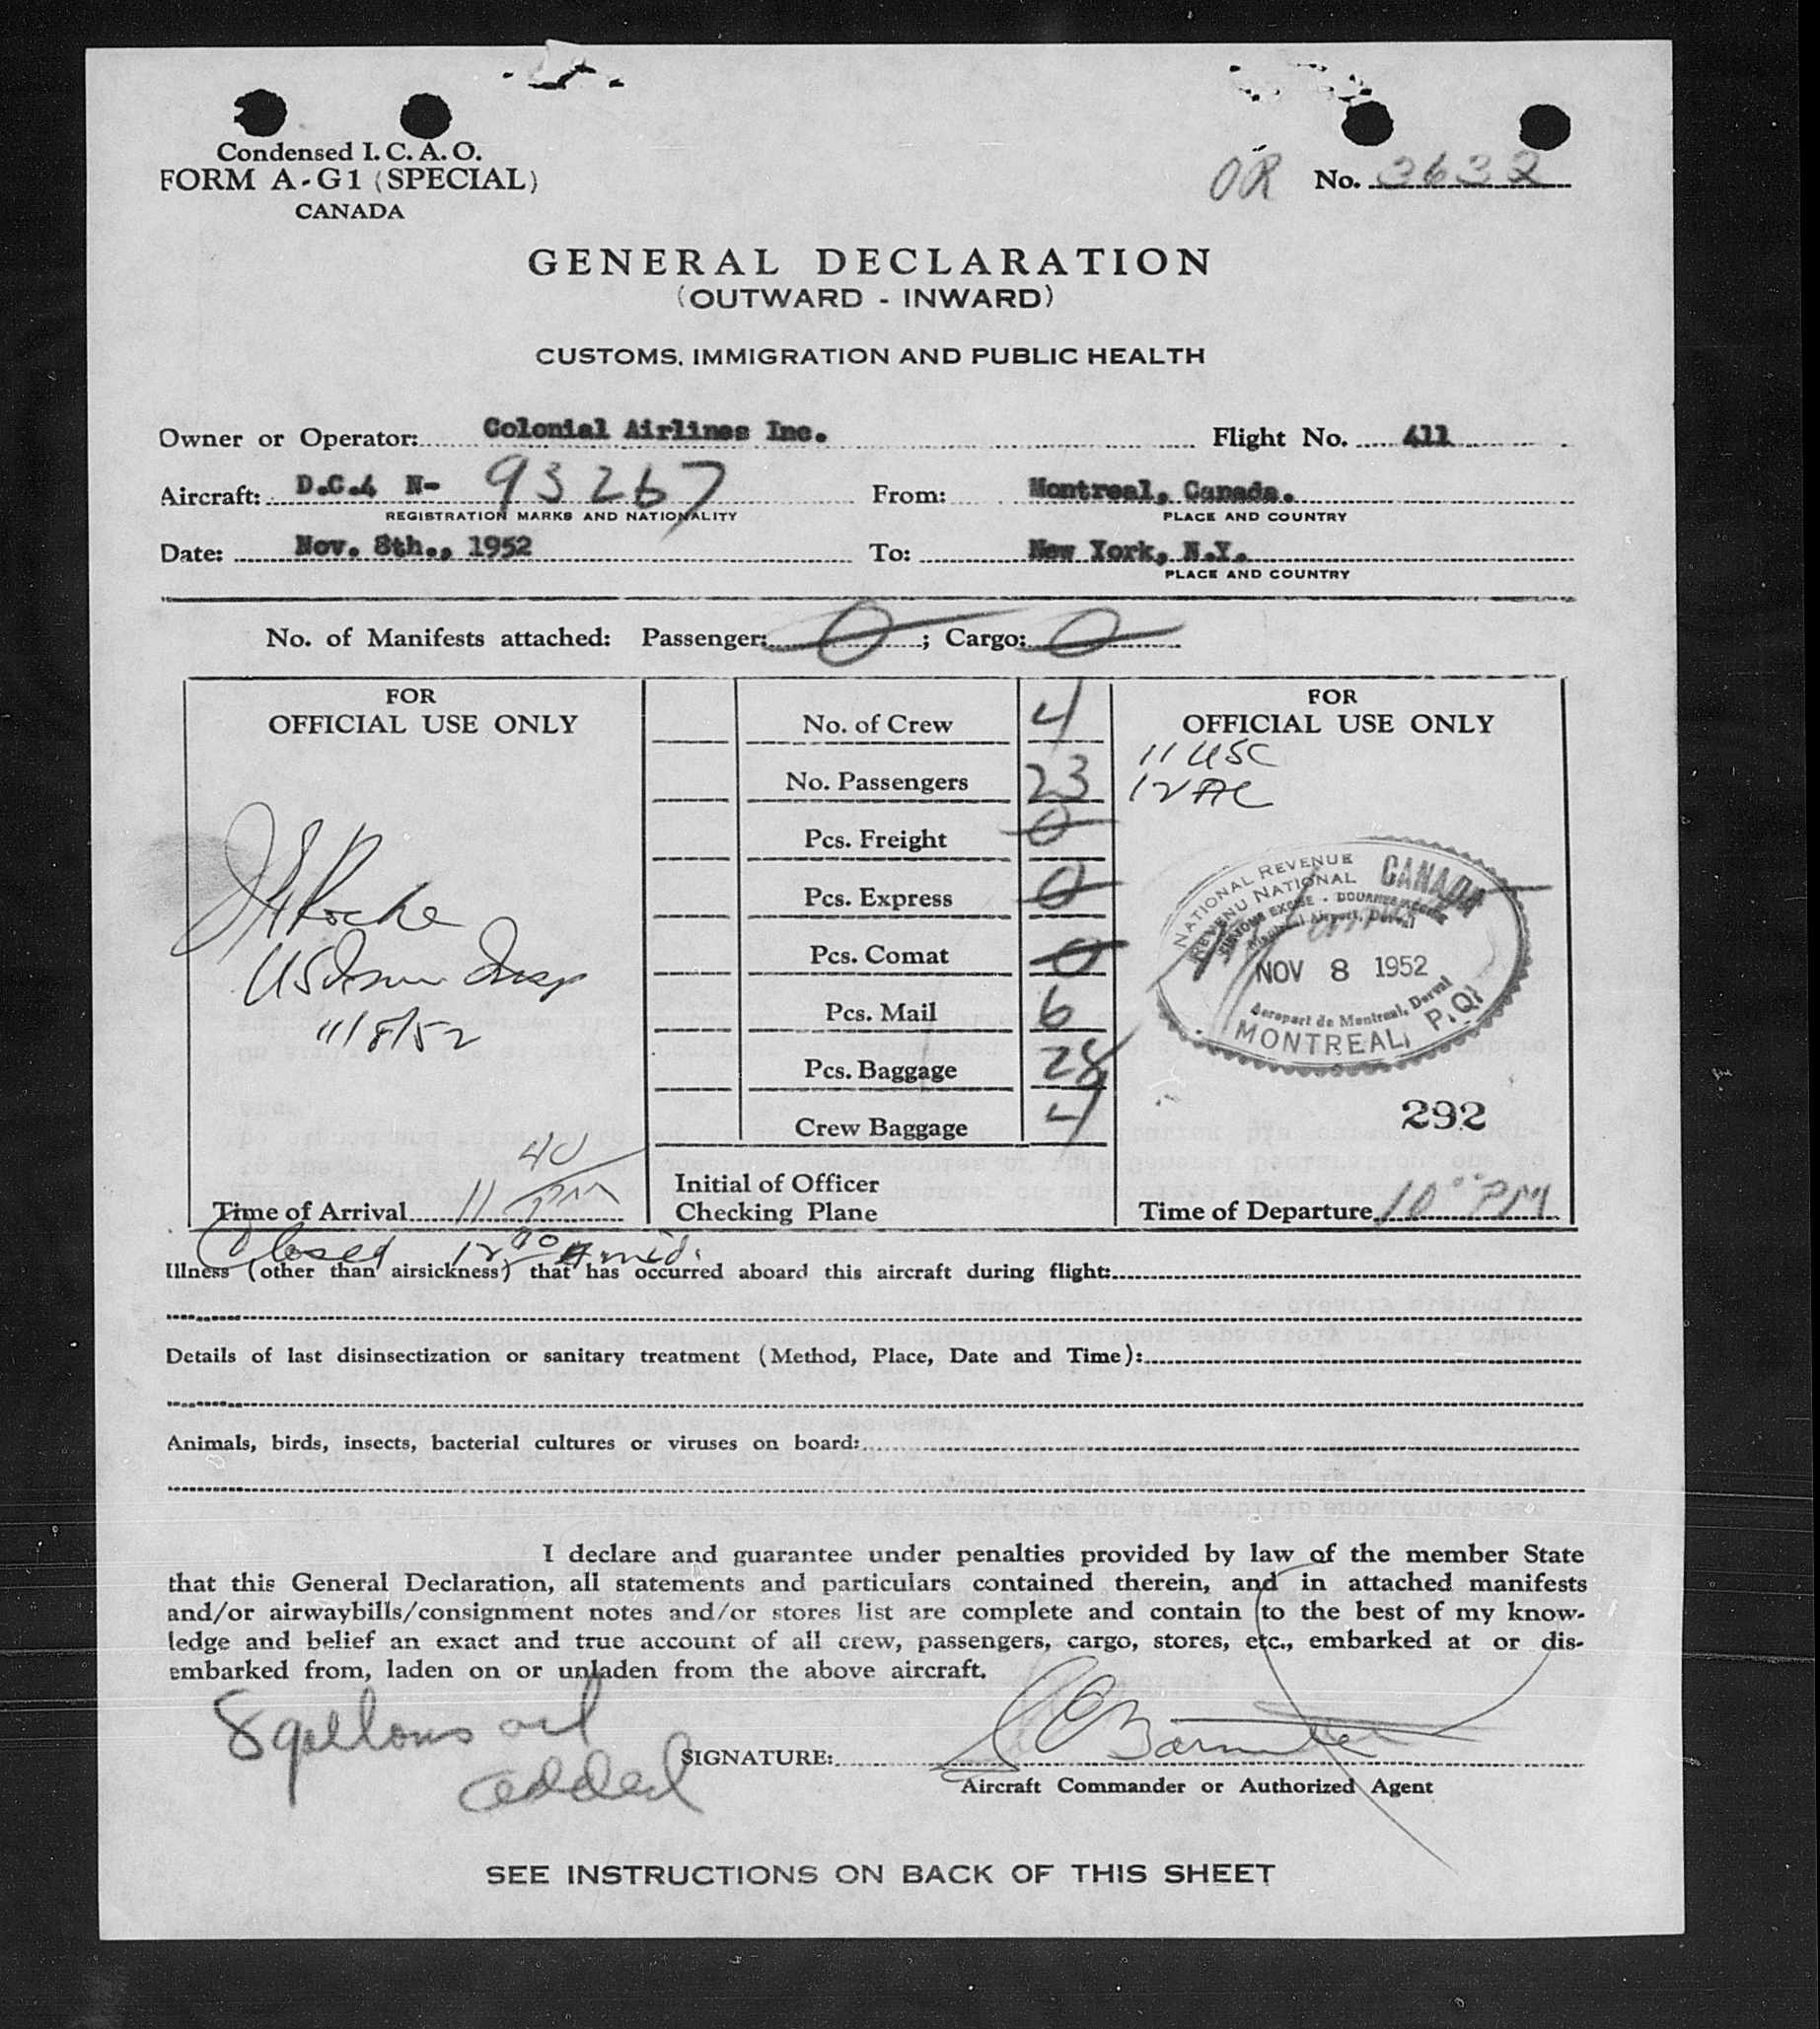 Condensed I. C. A. O.
FORM A-G1 (SPECIAL)
CANADA
OR No. 3632
GENERAL DECLARATION
(OUTWARD - INWARD)
CUSTOMS, IMMIGRATION AND PUBLIC HEALTH
Owner or Operator: Colonial Airlines Inc. Flight No. 411
Aircraft: D.C.4 N- 93267 From: Montreal, Canada.
REGISTRATION MARKS AND NATIONALITY PLACE AND COUNTRY
Date: Nov. 8th., 1952 To: New York, N.Y.
PLACE AND COUNTRY
No. of Manifests attached: Passenger: 0 ; Cargo: 0
FOR
OFFICIAL USE ONLY
Roche
11/8/52
Time of Arrival 11 40 PM
No. of Crew 4
No. Passengers 23
Pcs. Freight 0
Pcs. Express 0
Pcs. Comat 0
Pcs. Mail 6
Pcs. Baggage 28
Crew Baggage 4
Initial of Officer
Checking Plane
FOR
OFFICIAL USE ONLY
11 USC
12 AC
NATIONAL REVENUE
REVENU NATIONAL
CANADA
CUSTOMS EXCISE - DOUANES ACCISE
Montreal Airport, Dorval
NOV 8 1952
Aeroport de Montreal, Dorval
MONTREAL, P.Q.
292
Time of Departure 10 00 PM
Closed 12 00 mid.
Illness (other than airsickness) that has occurred aboard this aircraft during flight:
Details of last disinsectization or sanitary treatment (Method, Place, Date and Time):
Animals, birds, insects, bacterial cultures or viruses on board:
I declare and guarantee under penalties provided by law of the member State
that this General Declaration, all statements and particulars contained therein, and in attached manifests
and/or airwaybills/consignment notes and/or stores list are complete and contain to the best of my know-
ledge and belief an exact and true account of all crew, passengers, cargo, stores, etc., embarked at or dis-
embarked from, laden on or unladen from the above aircraft.
8 gallons oil
added
SIGNATURE:
Aircraft Commander or Authorized Agent
SEE INSTRUCTIONS ON BACK OF THIS SHEET